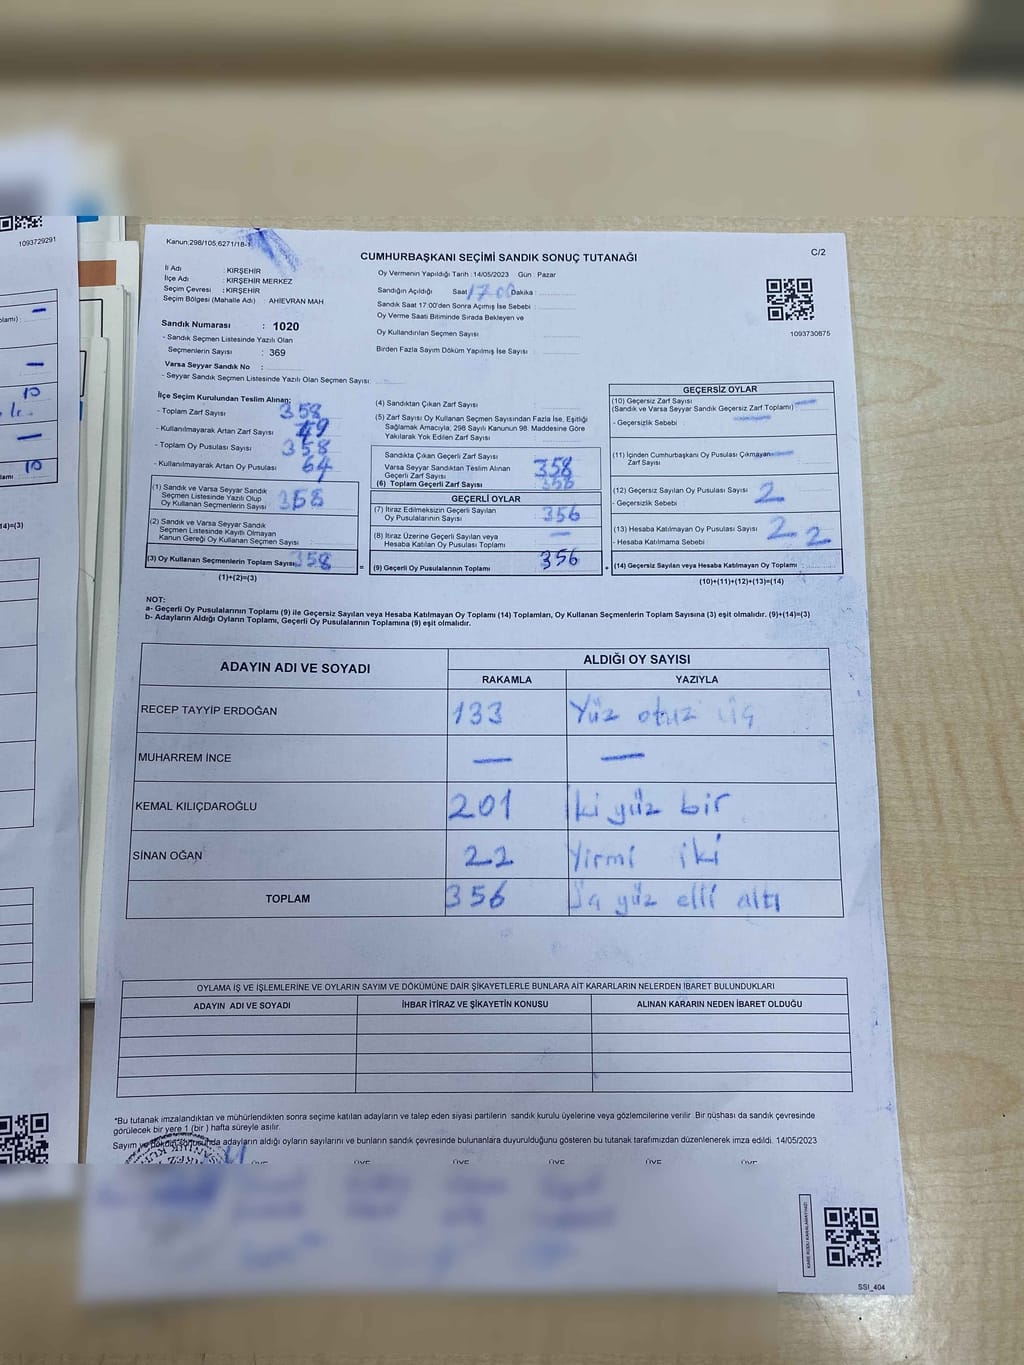 1093729291
Kanun:298/105,6271/18-1
C/2
CUMHURBAŞKANI SEÇİMİ SANDIK SONUÇ TUTANAĞI
İl Adı : KIRŞEHİR
İlçe Adı : KIRŞEHİR MERKEZ
Seçim Çevresi : KIRŞEHİR
Seçim Bölgesi (Mahalle Adı) : AHİEVRAN MAH
Oy Vermenin Yapıldığı Tarih :14/05/2023 Gün : Pazar
Sandığın Açıldığı Saat 17 00 Dakika :
Sandık Saat 17:00'den Sonra Açımış İse Sebebi :
Oy Verme Saati Bitiminde Sırada Bekleyen ve
Oy Kullandırılan Seçmen Sayısı
Birden Fazla Sayım Döküm Yapılmış İse Sayısı :
1093730875
Sandık Numarası : 1020
- Sandık Seçmen Listesinde Yazılı Olan
Seçmenlerin Sayısı : 369
Varsa Seyyar Sandık No :
- Seyyar Sandık Seçmen Listesinde Yazılı Olan Seçmen Sayısı:
İlçe Seçim Kurulundan Teslim Alınan;
- Toplam Zarf Sayısı 358
- Kullanılmayarak Artan Zarf Sayısı
- Toplam Oy Pusulası Sayısı 358
- Kullanılmayarak Artan Oy Pusulası 64
(1) Sandık ve Varsa Seyyar Sandık
Seçmen Listesinde Yazılı Olup
Oy Kullanan Seçmenlerin Sayısı 358
(2) Sandık ve Varsa Seyyar Sandık
Seçmen Listesinde Kayıtlı Olmayan
Kanun Gereği Oy Kullanan Seçmen Sayısı :
(3) Oy Kullanan Seçmenlerin Toplam Sayısı 358
(1)+(2)=(3)
(4) Sandıktan Çıkan Zarf Sayısı
(5) Zarf Sayısı Oy Kullanan Seçmen Sayısından Fazla İse, Eşitliği
Sağlamak Amacıyla; 298 Sayılı Kanunun 98. Maddesine Göre
Yakılarak Yok Edilen Zarf Sayısı
Sandıkta Çıkan Geçerli Zarf Sayısı
Varsa Seyyar Sandıktan Teslim Alınan
Geçerli Zarf Sayısı 358
(6) Toplam Geçerli Zarf Sayısı
GEÇERLİ OYLAR
(7) İtiraz Edilmeksizin Geçerli Sayılan
Oy Pusulalarının Sayısı 356
(8) İtiraz Üzerine Geçerli Sayılan veya
Hesaba Katılan Oy Pusulası Toplamı —
= (9) Geçerli Oy Pusulalarının Toplamı 356 +
GEÇERSİZ OYLAR
(10) Geçersiz Zarf Sayısı
(Sandık ve Varsa Seyyar Sandık Geçersiz Zarf Toplamı) —
- Geçersizlik Sebebi —
(11) İçinden Cumhurbaşkanı Oy Pusulası Çıkmayan —
Zarf Sayısı
(12) Geçersiz Sayılan Oy Pusulası Sayısı 2
- Geçersizlik Sebebi
(13) Hesaba Katılmayan Oy Pusulası Sayısı 2 2
- Hesaba Katılmama Sebebi
(14) Geçersiz Sayılan veya Hesaba Katılmayan Oy Toplamı :
(10)+(11)+(12)+(13)=(14)
NOT:
a- Geçerli Oy Pusulalarının Toplamı (9) ile Geçersiz Sayılan veya Hesaba Katılmayan Oy Toplamı (14) Toplamları, Oy Kullanan Seçmenlerin Toplam Sayısına (3) eşit olmalıdır. (9)+(14)=(3)
b- Adayların Aldığı Oyların Toplamı, Geçerli Oy Pusulalarının Toplamına (9) eşit olmalıdır.
ADAYIN ADI VE SOYADI
ALDIĞI OY SAYISI
RAKAMLA YAZIYLA
RECEP TAYYİP ERDOĞAN 133 Yüz otuz üç
MUHARREM İNCE — —
KEMAL KILIÇDAROĞLU 201 İki yüz bir
SİNAN OĞAN 22 Yirmi iki
TOPLAM 356 Üç yüz elli altı
OYLAMA İŞ VE İŞLEMLERİNE VE OYLARIN SAYIM VE DÖKÜMÜNE DAİR ŞİKAYETLERLE BUNLARA AİT KARARLARIN NELERDEN İBARET BULUNDUKLARI
ADAYIN ADI VE SOYADI İHBAR İTİRAZ VE ŞİKAYETİN KONUSU ALINAN KARARIN NEDEN İBARET OLDUĞU
*Bu tutanak imzalandıktan ve mühürlendikten sonra seçime katılan adayların ve talep eden siyasi partilerin sandık kurulu üyelerine veya gözlemcilerine verilir. Bir nüshası da sandık çevresinde
görülecek bir yere 1 (bir ) hafta süreyle asılır.
Sayım ve döküm sonucunda adayların aldığı oyların sayılarını ve bunların sandık çevresinde bulunanlara duyurulduğunu gösteren bu tutanak tarafımızdan düzenlenerek imza edildi. 14/05/2023
ÜYE ÜYE ÜYE ÜYE ÜYE ÜYE
KARE KODU KARALAMAYINIZ!
SSI_404